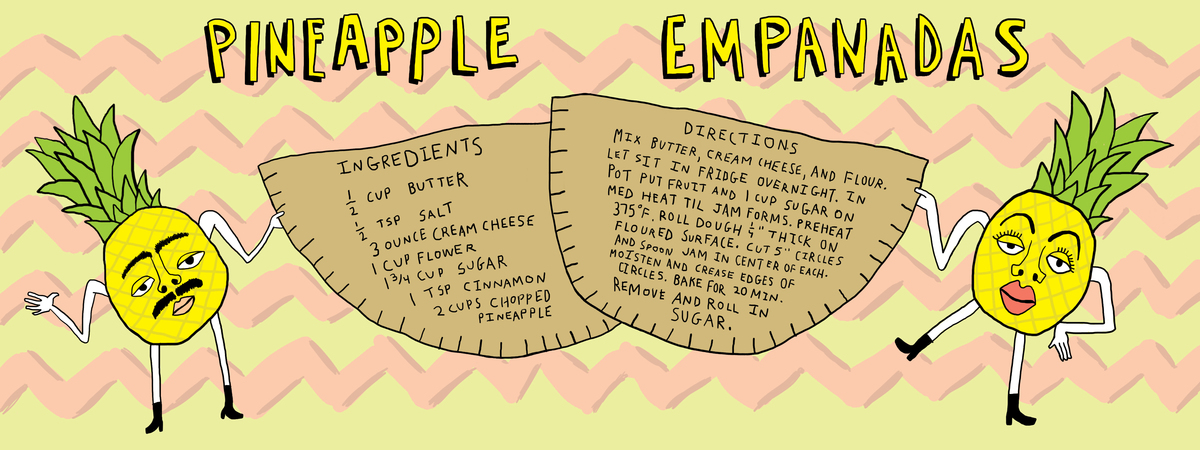 PINEAPPLE EMPANADAS
INGREDIENTS
1/2 CUP BUTTER
1/2 TSP SALT
3 OUNCE CREAM CHEESE
1 CUP FLOWER
1 3/4 CUP SUGAR
1 TSP CINNAMON
2 CUPS CHOPPED
PINEAPPLE
DIRECTIONS
MIX BUTTER, CREAM CHEESE, AND FLOUR.
LET SIT IN FRIDGE OVERNIGHT. IN
POT PUT FRUIT AND 1 CUP SUGAR ON
MED HEAT TIL JAM FORMS. PREHEAT
375°F. ROLL DOUGH 1/4" THICK ON
FLOURED SURFACE. CUT 5" CIRCLES
AND SPOON JAM IN CENTER OF EACH.
MOISTEN AND CREASE EDGES OF
CIRCLES. BAKE FOR 20 MIN.
REMOVE AND ROLL IN
SUGAR.